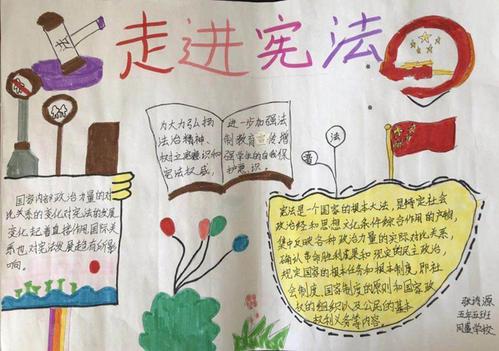 走进宪法
法
为大力弘扬
法治精神、
权树立宪意识和
宪法权威,
进一步加强法
制教育宣传增
强学生的自我保
护意识。
普
法
国家内部政治力量的对
比关系的变化对宪法的发展
变化起着直接作用国际关
系也对宪法发展趋有所影
响。
宪法是一个国家的根本大法,是特定社会
政治经和思想文化条件综合作用的产物,
集中反映各种政治力量的实际对比关系,
确认革命胜利成果和现实的民主政治,
规定国家的根本任务和根本制度,即社
会制度,国家制度的原则和国家政
权的组织以及公民的基本
权利义务等内容。
五年五班
同盛学校